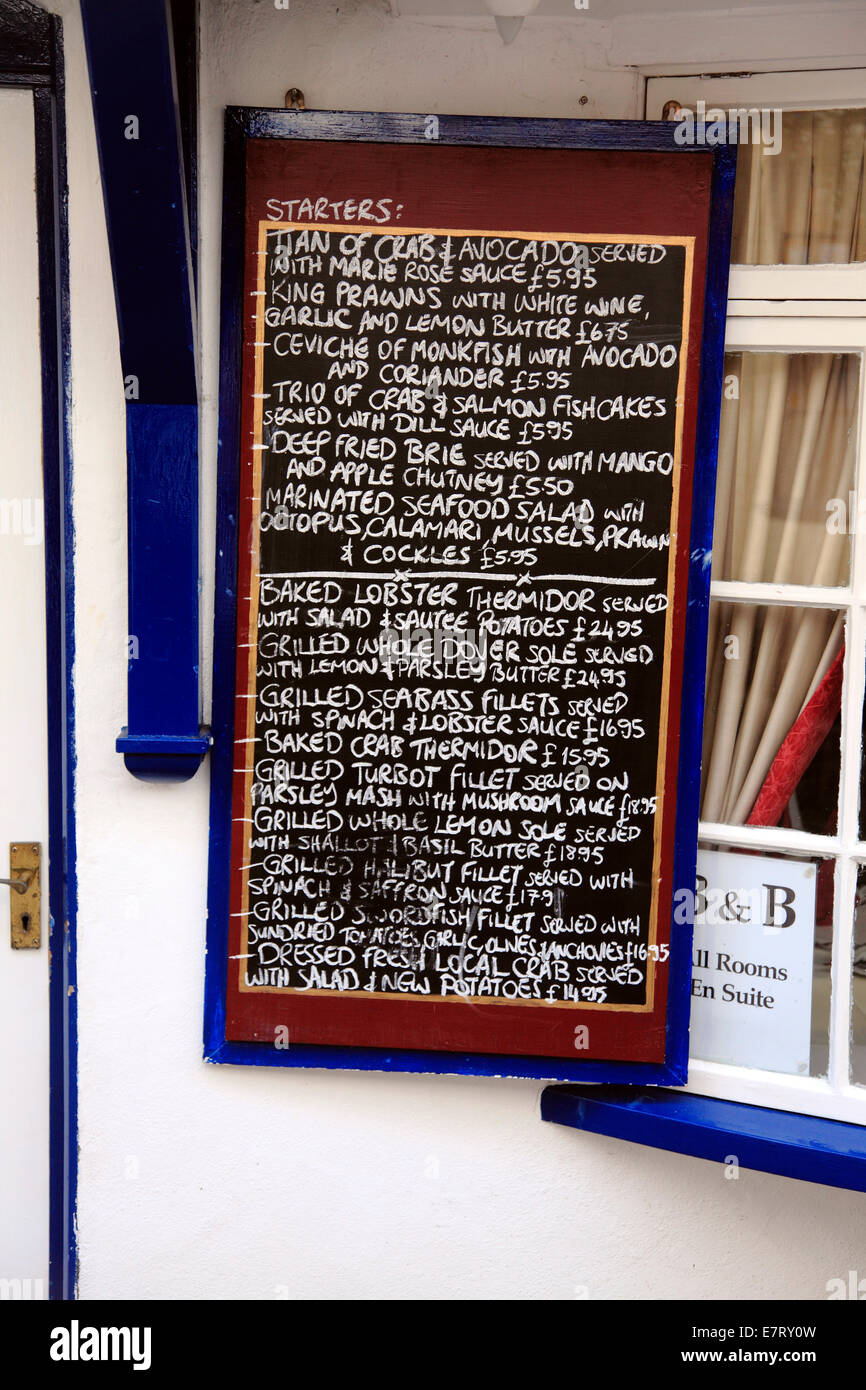 STARTERS:
TIAN OF CRAB & AVOCADO SERVED
WITH MARIE ROSE SAUCE £5.95
KING PRAWNS WITH WHITE WINE,
GARLIC AND LEMON BUTTER £6.75
CEVICHE OF MONKFISH WITH AVOCADO
AND CORIANDER £5.95
TRIO OF CRAB & SALMON FISHCAKES
SERVED WITH DILL SAUCE £5.95
DEEP FRIED BRIE SERVED WITH MANGO
AND APPLE CHUTNEY £5.50
MARINATED SEAFOOD SALAD WITH
OCTOPUS, CALAMARI, MUSSELS, PRAWN
& COCKLES £5.95
BAKED LOBSTER THERMIDOR SERVED
WITH SALAD & SAUTEE POTATOES £24.95
GRILLED WHOLE DOVER SOLE SERVED
WITH LEMON & PARSLEY BUTTER £24.95
GRILLED SEABASS FILLETS SERVED
WITH SPINACH & LOBSTER SAUCE £16.95
BAKED CRAB THERMIDOR £15.95
GRILLED TURBOT FILLET SERVED ON
PARSLEY MASH WITH MUSHROOM SAUCE £18.95
GRILLED WHOLE LEMON SOLE SERVED
WITH SHALLOT & BASIL BUTTER £18.95
GRILLED HALIBUT FILLET SERVED WITH
SPINACH & SAFFRON SAUCE £17.9
GRILLED SWORDFISH FILLET SERVED WITH
SUNDRIED TOMATOES, GARLIC, OLIVES & ANCHOVIES £16.95
DRESSED FRESH LOCAL CRAB SERVED
WITH SALAD & NEW POTATOES £14.95
B & B
All Rooms
En Suite
alamy
Image ID: E7RY0W
www.alamy.com